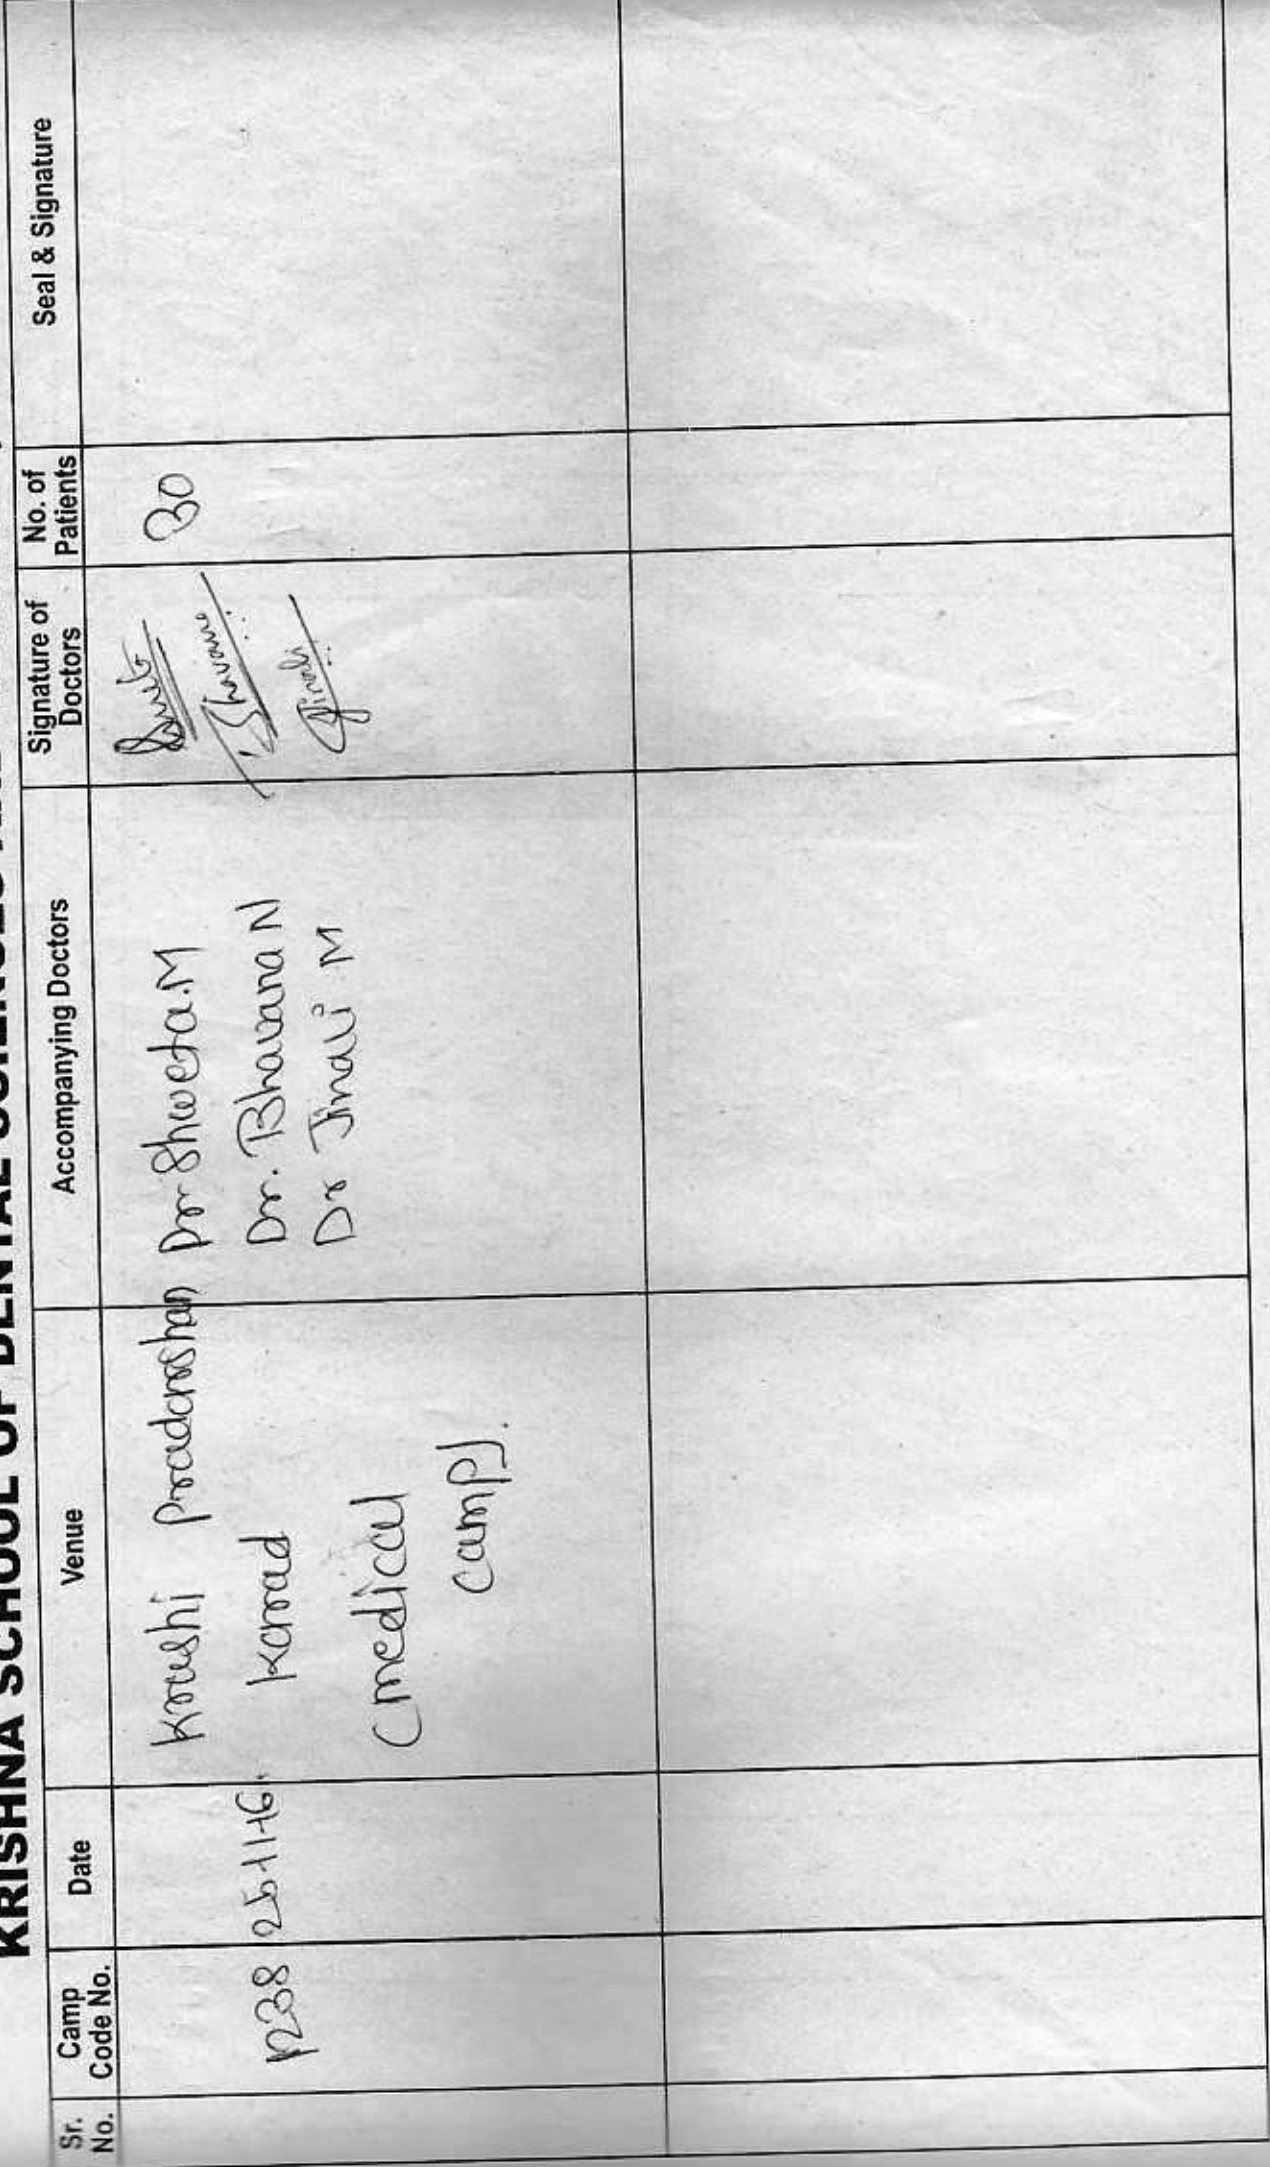 KRISHNA SCHOOL OF DENTAL
Sr. No.
Camp Code No.
Date
Venue
Accompanying Doctors
Signature of Doctors
No. of Patients
Seal & Signature
1238
25-11-16.
Krushi Pradarshan
Karad
(medical
camp).
Dr Shweta.M
Dr. Bhavana N
Dr Jinali M
30